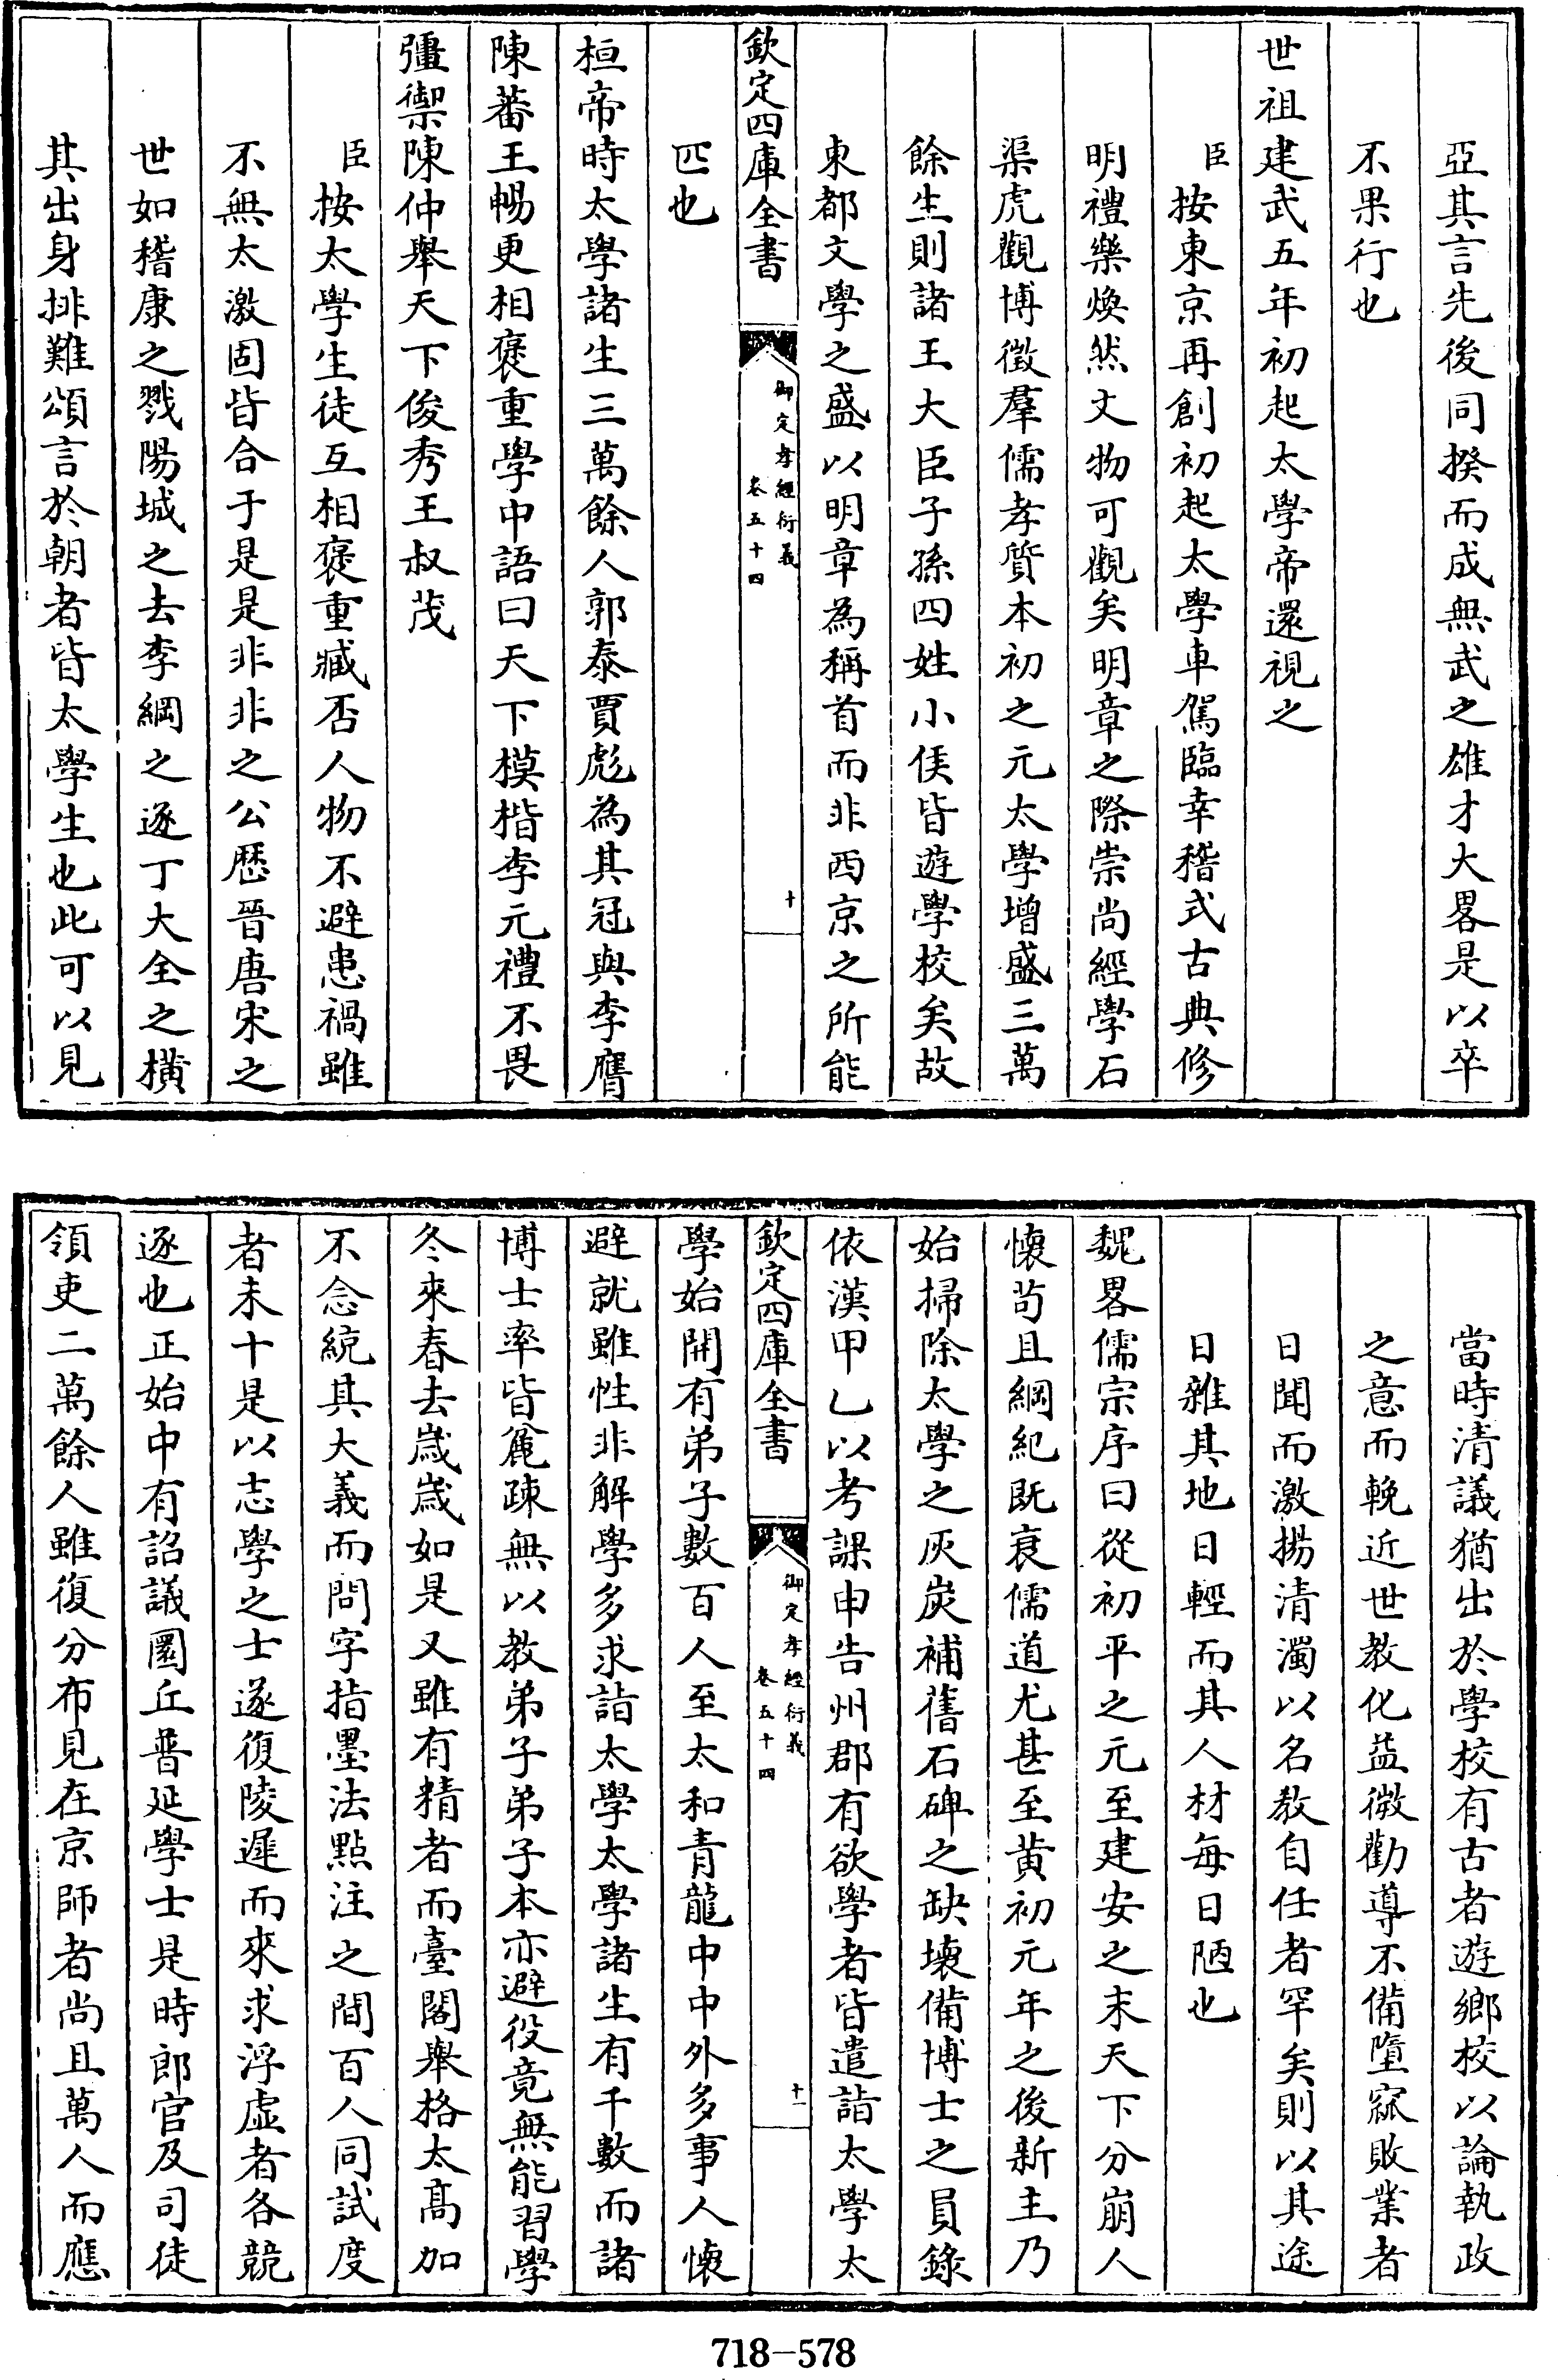 亞其言先後同揆而成無武之雄才大畧是以卒
不果行也
世祖建武五年初起太學帝還視之
臣按東京再創初起太學車駕臨幸稽式古典修
明禮樂煥然文物可觀矣明章之際崇尚經學石
渠虎觀博徵羣儒孝質本初之元太學增盛三萬
餘生則諸王大臣子孫四姓小侯皆遊學校矣故
東都文學之盛以明章為稱首而非西京之所能
欽定四庫全書
御定孝經衍義
卷五十四
十
匹也
桓帝時太學諸生三萬餘人郭泰賈彪為其冠與李膺
陳蕃王暢更相褒重學中語曰天下模楷李元禮不畏
彊禦陳仲舉天下俊秀王叔茂
臣按太學生徒互相褒重臧否人物不避患禍雖
不無太激固皆合于是是非非之公歴晉唐宋之
世如稽康之戮陽城之去李綱之逐丁大全之橫
其出身排難頌言於朝者皆太學生也此可以見
當時清議猶出於學校有古者遊鄉校以論執政
之意而輓近世教化益微勸導不備墮窳敗業者
日聞而激揚清濁以名教自任者罕矣則以其途
日雜其地日輕而其人材每日陋也
魏畧儒宗序曰從初平之元至建安之末天下分崩人
懷苟且綱紀既衰儒道尤甚至黄初元年之後新主乃
始掃除太學之灰炭補舊石碑之缺壞備博士之員錄
依漢甲乙以考課申告州郡有欲學者皆遣詣太學太
欽定四庫全書
御定孝經衍義
卷五十四
十一
學始開有弟子數百人至太和青龍中中外多事人懷
避就雖性非解學多求詣太學太學諸生有千數而諸
博士率皆麄疎無以教弟子弟子本亦避役竟無能習學
冬來春去歲歲如是又雖有精者而臺閣舉格太髙加
不念統其大義而問字指墨法點注之間百人同試度
者未十是以志學之士遂復陵遲而來求浮虛者各競
逐也正始中有詔議圜丘普延學士是時郎官及司徒
領吏二萬餘人雖復分布見在京師者尚且萬人而應
718-578